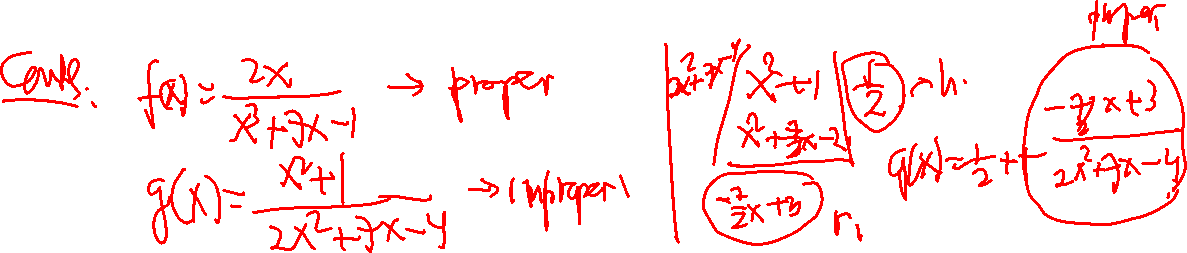 f(x) = 2x / (x³ + 7x - 1) → proper
g(x) = (x² + 1) / (2x² + 7x - 4) → improper
2x² + 7x - 4 / x² + 1 / 1/2 → h.
x² + 7/2x - 2
-7/2x + 3
r.
proper.
g(x) = 1/2 + (-7/2x + 3) / (2x² + 7x - 4)